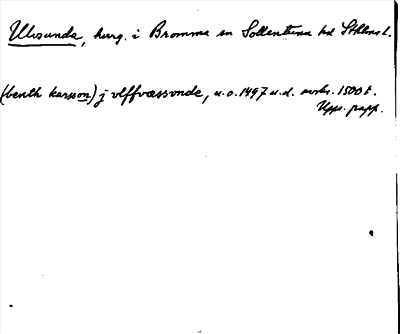 Ulvsunda, herrg. i Bromma sn Sollentuna hd Sthlms l.
(benth karsson) j vlffvæssvnde, u.o. 1497 u.d. avskr. 1500 t.
Upps. papp.